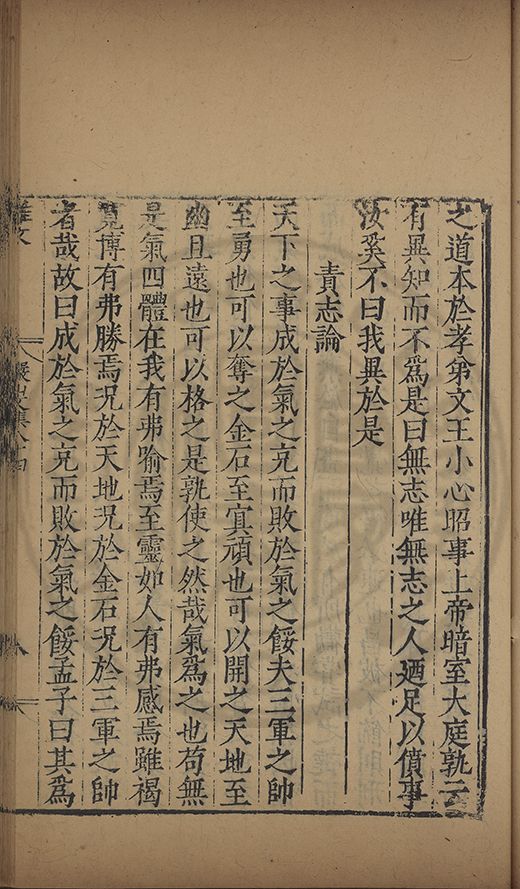 之道本於孝弟文王小心昭事上帝暗室大庭孰云
有異知而不爲是曰無志唯無志之人廼足以僨事
汝奚不曰我異於是
責志論
天下之事成於氣之充而敗於氣之餒夫三軍之帥
至勇也可以奪之金石至寘頑也可以開之天地至
幽且遠也可以格之是孰使之然哉氣爲之也苟無
是氣四體在我有弗喻焉至靈如人有弗感焉雖褐
寬博有弗勝焉况於天地况於金石况於三軍之帥
者哉故曰成於氣之充而敗於氣之餒孟子曰其爲